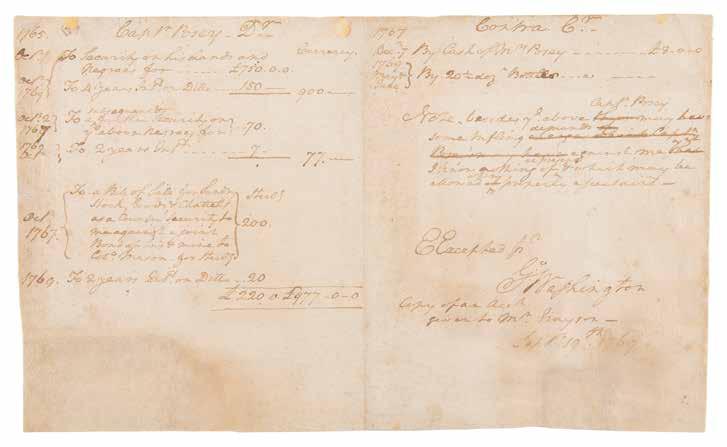 1765. Capt. Posey - Dr.
Currency.
Octr. To Security on his Lands and
Negroes for £750.0.0.
1769 To 4 years Intt. on Ditto 150 900
Octr. 2 To a further Security on
1767 ye. above Negroes for 70.
1769 To 2 years Intt. 7. 77.
To a Bill of Sale for Sundy.
Stock, Goods & Chattels Sterlg
Octr. as a Counter Security to
1767. me against a joint 200.
Bond of his & mine to
Colo. Mason for Sterlg
1769. To 2 years Intt. on Ditto 20
£220.0 £977.0.0
1767 Contra Cr.
Octr. 7 By Cash of Mrs. Posey £8.0.0
1768 By 20½ dozn. Bottles
Note, besides ye. above Capt. Posey may have
some trifling demands
against me
I know nothing of & which may be
allowed if properly ascertaind
E Excepted pr.
Go. Washington
Copy of an Acct.
given to Mr. Grayson
Sept. 19th. 1769